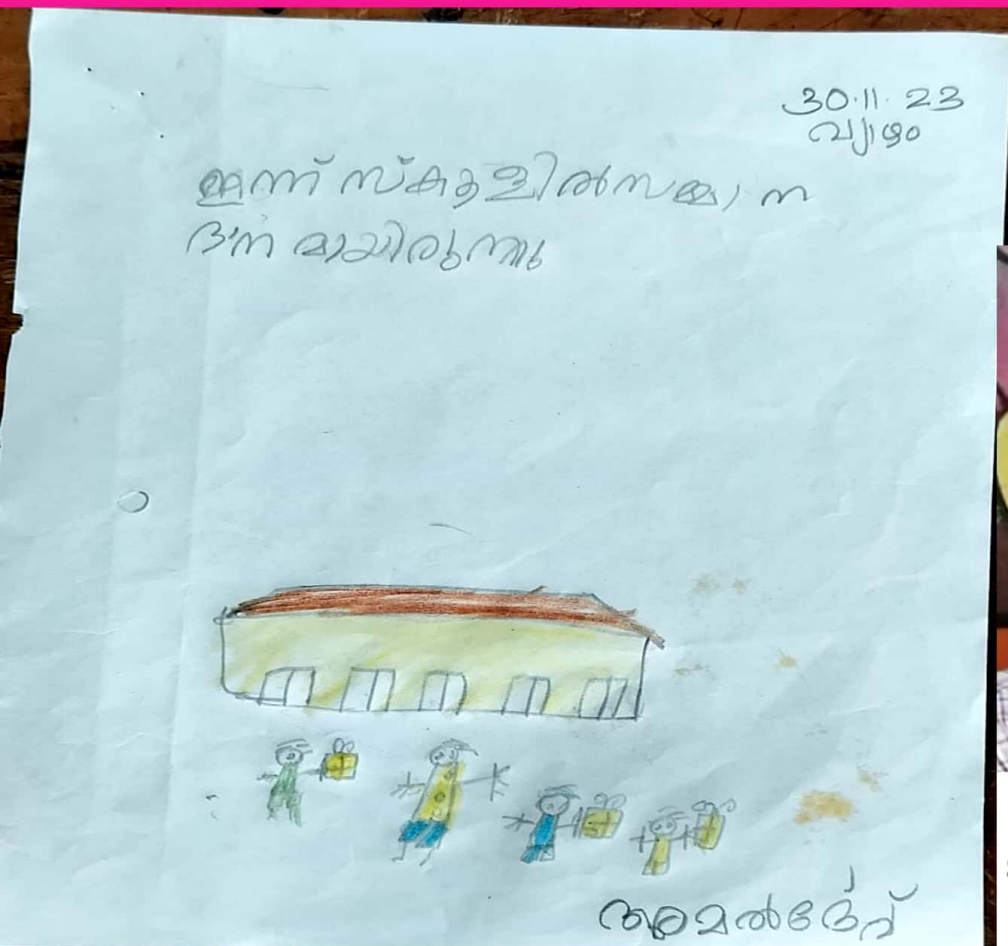 30.11.23
വ്യാഴം
ഇന്ന് സ്കൂളിൽ സമ്മാന
ദിന മായിരുന്നു
അമൽദേവ്